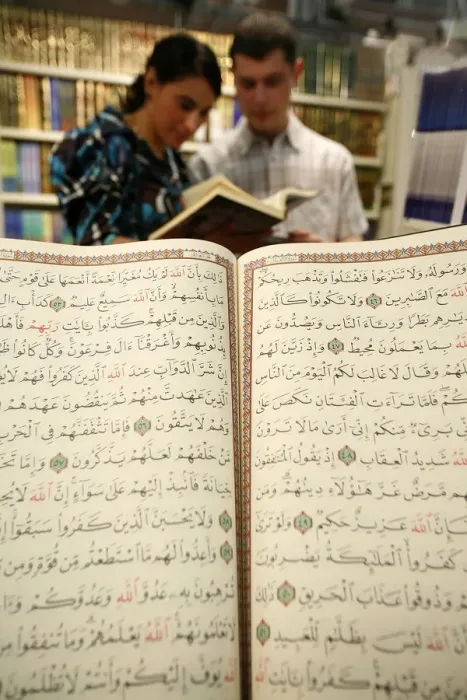 وَرَسُولَهُۥ وَلَا تَنَٰزَعُوا۟ فَتَفْشَلُوا۟ وَتَذْهَبَ رِيحُكُمْ
ٱللَّهَ مَعَ ٱلصَّٰبِرِينَ ٤٦ وَلَا تَكُونُوا۟ كَٱلَّذِينَ
دِيَٰرِهِم بَطَرًا وَرِئَآءَ ٱلنَّاسِ وَيَصُدُّونَ عَن
ٱللَّهُ بِمَا يَعْمَلُونَ مُحِيطٌ ٤٧ وَإِذْ زَيَّنَ لَهُمُ
لَهُمْ وَقَالَ لَا غَالِبَ لَكُمُ ٱلْيَوْمَ مِنَ ٱلنَّاسِ
كُمْ فَلَمَّا تَرَآءَتِ ٱلْفِئَتَانِ نَكَصَ عَلَىٰ
بَرِىٓءٌ مِّنكُمْ إِنِّىٓ أَرَىٰ مَا لَا تَرَوْنَ
ٱللَّهُ شَدِيدُ ٱلْعِقَابِ ٤٨ إِذْ يَقُولُ ٱلْمُنَٰفِقُونَ
مَّرَضٌ غَرَّ هَٰٓؤُلَآءِ دِينُهُمْ وَمَن
فَإِنَّ ٱللَّهَ عَزِيزٌ حَكِيمٌ ٤٩ وَلَوْ تَرَىٰٓ
كَفَرُوا۟ ٱلْمَلَٰٓئِكَةُ يَضْرِبُونَ
وَذُوقُوا۟ عَذَابَ ٱلْحَرِيقِ ٥٠ ذَٰلِكَ
ٱللَّهَ لَيْسَ بِظَلَّٰمٍ لِّلْعَبِيدِ ٥١
مِن قَبْلِهِمْ كَفَرُوا۟ بِـَٔايَٰتِ ٱللَّهِ
ذَٰلِكَ بِأَنَّ ٱللَّهَ لَمْ يَكُ مُغَيِّرًا نِّعْمَةً أَنْعَمَهَا عَلَىٰ قَوْمٍ حَتَّىٰ
مَا بِأَنفُسِهِمْ وَأَنَّ ٱللَّهَ سَمِيعٌ عَلِيمٌ ٥٣ كَدَأْبِ ءَالِ
وَٱلَّذِينَ مِن قَبْلِهِمْ كَذَّبُوا۟ بِـَٔايَٰتِ رَبِّهِمْ فَأَهْلَ
بِذُنُوبِهِمْ وَأَغْرَقْنَآ ءَالَ فِرْعَوْنَ وَكُلٌّ كَانُوا۟
إِنَّ شَرَّ ٱلدَّوَآبِّ عِندَ ٱللَّهِ ٱلَّذِينَ كَفَرُوا۟ فَهُمْ لَا
ٱلَّذِينَ عَٰهَدتَّ مِنْهُمْ ثُمَّ يَنقُضُونَ عَهْدَهُمْ
وَهُمْ لَا يَتَّقُونَ ٥٦ فَإِمَّا تَثْقَفَنَّهُمْ فِى ٱلْحَرْبِ
مَّنْ خَلْفَهُمْ لَعَلَّهُمْ يَذَّكَّرُونَ ٥٧ وَإِمَّا
خِيَانَةً فَٱنۢبِذْ إِلَيْهِمْ عَلَىٰ سَوَآءٍ إِنَّ ٱللَّهَ لَا
٥٨ وَلَا يَحْسَبَنَّ ٱلَّذِينَ كَفَرُوا۟ سَبَقُوٓا۟
٥٩ وَأَعِدُّوا۟ لَهُم مَّا ٱسْتَطَعْتُم مِّن قُوَّةٍ وَمِن
تُرْهِبُونَ بِهِۦ عَدُوَّ ٱللَّهِ وَعَدُوَّكُمْ
لَا تَعْلَمُونَهُمُ ٱللَّهُ يَعْلَمُهُمْ وَمَا تُنفِقُوا۟ مِن
ٱللَّهِ يُوَفَّ إِلَيْكُمْ وَأَنتُمْ لَا تُظْلَمُونَ